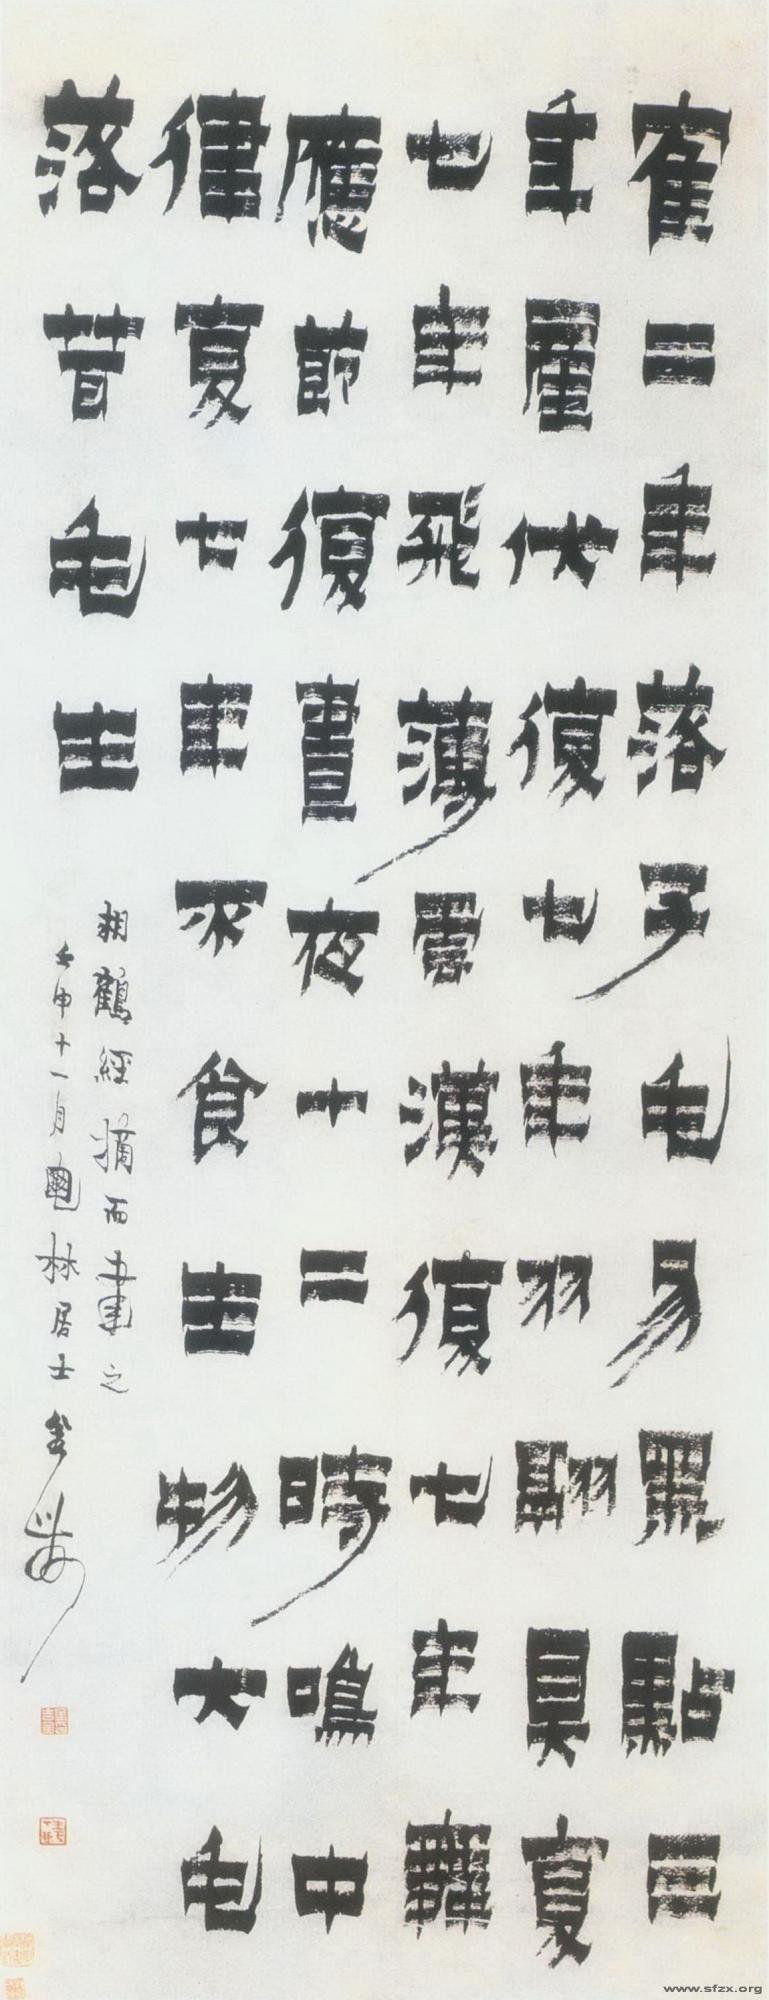 寉二年落子毛易黑點三
年產伏復七年羽翮具复
七年飛薄雲漢復七年舞
應節復晝夜十二時鳴中
律复七年不食生物大毛
落茸毛生
相鶴經摘而之
壬申十一月林居士金農
www.sfzx.org